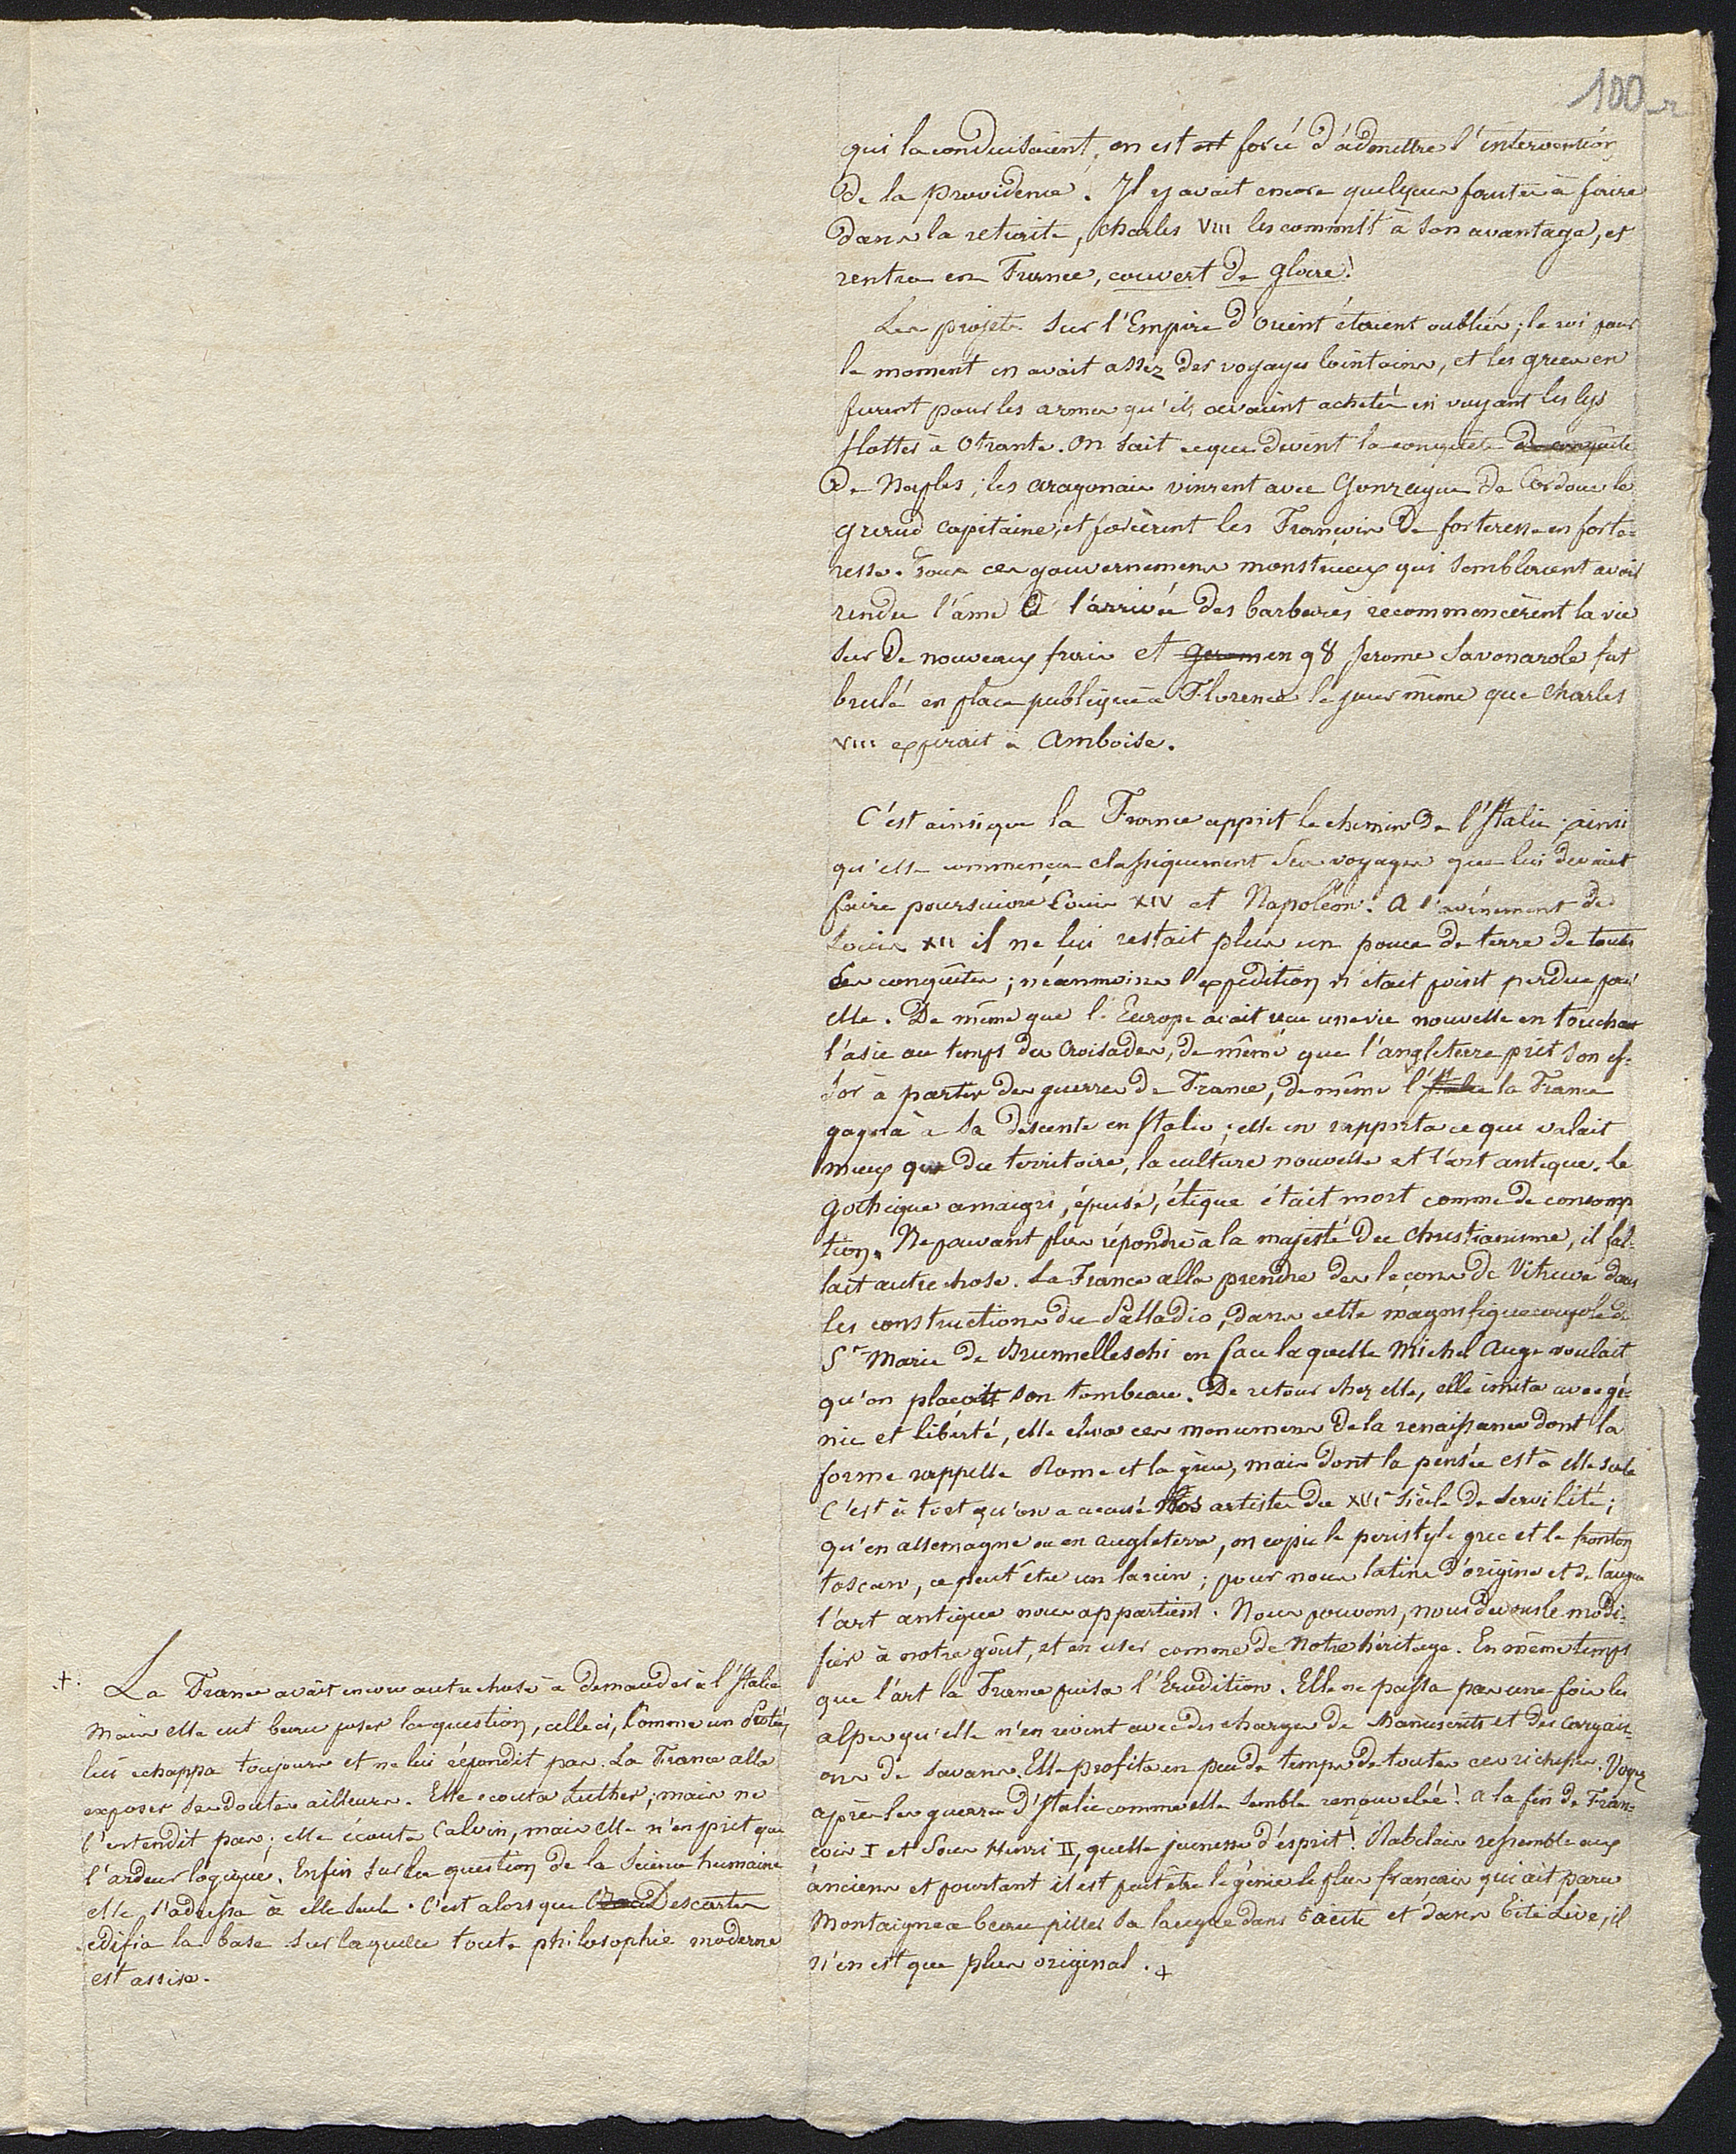 100
qui la conduisaient, on est est forcé d'admettre l'intervention
de la providence. Il y avait encore quelques fautes à faire
dans la retraite, Charles VIII les commit à son avantage, et
rentra en France, couvert de gloire!
Les projets sur l'Empire d'Orient étaient oubliés; le roi pour
le moment en avait assez des voyages lointains, et les grecs en
furent pour les armes qu'ils avaient acheté en voyant les lys
flotter à Otrante. On sait ce que devint la conquête de conquête
de Naples; les aragonais vinrent avec Gonzague de Cordoue le
grand capitaine, et forcèrent les Français de forteresse en forte-
resse. Tous ces gouvernemens monstrueux qui semblerent avoir
rendu l'âme à l'arrivée des barbares recommencèrent la vie
sur de nouveaux frais et gerom en 98 Jerome Savonarole fut
brulé en place publique à Florence le jour même que Charles
VIII expirait à Amboise.
C'est ainsi que la France apprit le chemin de l'Italie; ainsi
qu'elle commença classiquement ses voyages que lui devaient
faire poursuivre Louis XIV et Napoléon. A l'avènement de
Louis XII il ne lui restait plus un pouce de terre de toutes
ses conquêtes; néanmoins l'expédition n'était point perdue pour
elle. De même que l'Europe avait vecu une vie nouvelle en touchant
l'asie au temps des croisades, de même que l'angleterre prit son es-
sor à partir des guerres de France, de même l'Italie la France
gagna à sa descente en Italie; elle en rapporta ce qui valait
mieux que du territoire, la culture nouvelle et l'art antique. Le
gothique amaigri, épuisé, étique était mort comme de consomp
tion. Ne pouvant plus répondre à la majesté du Christianisme, il fal-
lait autre chose. La France alla prendre des leçons de Vitruve dans
les constructions du Palladio, dans cette magnifique coupole de
Ste Marie de Brunnelleschi en face laquelle Michel Ange voulait
qu'on plaçait son tombeau. De retour chez elle, elle imita avec gé-
nie et liberté, elle eleva ces monumens de la renaissance dont la
forme rappelle Rome et la grèce, mais dont la pensée est à elle seule
C'est à tort qu'on a accusé nos artistes du XVIe siècle de servilité;
qu'en allemagne ou en angleterre, on copie le peristyle grec et le fronton
toscan, ce peut être un larcin; pour nous latins d'origine et de langue
l'art antique nous appartient. Nous pouvons, nous devons le modi-
fier à notre goût, et en user comme de notre héritage. En même temps
que l'art la France puisa l'Erudition. Elle ne passa pas une fois les
alpes qu'elle n'en revint avec des charges de manuscrits et des cargais-
ons de savans. Elle profita en peu de temps de toutes ces richesses. Voyez
après les guerres d'Italie comme elle semble renouvelée! a la fin de Fran-
cois I et sous Henri II, quelle jeunesse d'esprit! Rabelais ressemble aux
anciens et pourtant il est peut être le génie le plus français qui ait paru
Montaigne a beau piller sa langue dans Tacite et dans Tite Live, il
n'en est que plus original. +
+. La France avait encore autre chose à demander à l'Italie
Mais elle eut beau poser la question, celle ci, comme un Protée,
lui echappa toujours et ne lui répondit pas. La France alla
exposer ses doutes ailleurs. Elle ecouta Luther; mais ne
l'entendit pas; elle écouta Calvin, mais elle n'en prit que
l'ardeur logique. Enfin sur la question de la Science humaine
elle s'adressa à elle seule. C'est alors que Descartes
edifia la base sur laquelle toute philosophie moderne
est assise.